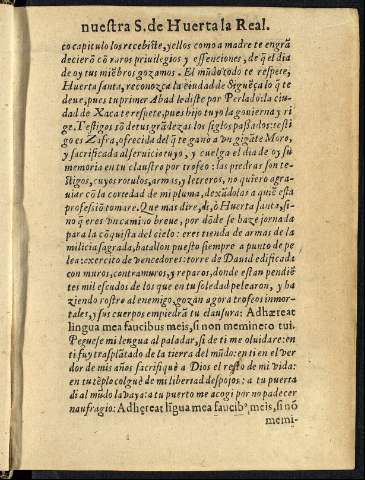 nuestra S. de Huerta la Real.
co capitulo los recebiste, y ellos como a madre te engrã
decierõ cõ raros priuilegios y essenciones, de q̃ el dia
de oy tus miẽbros gozamos. El mũdo todo te respete,
Huerta santa, reconozca la ciudad de Siguẽça lo q̃ te
deue, pues tu primer Abad le diste por Perlado: la ciu
dad de Xaca te respete, pues hijo tuyo la gouierna y ri
ge. Testigos sõ de tus grãdezas los siglos passados: testi
go es Zafra, ofrecida del q̃ te gano a vn gigãte Moro,
y sacrificada al seruicio tuyo, y cuelga el dia de oy su
memoria en tu claustro por trofeo: las piedras son tes-
tigos, cuyos rotulos, armas, y letreros, no quiero agra-
uiar cõ la cortedad de mi pluma, dexãdolas a quiẽ està
professiõ tomare. Que mas dire, di, ò Huerta santa, si-
no q̃ eres vn camino breue, por dõde se haze jornada
para la cõquista del cielo: eres tienda de armas de la
milicia sagrada, batallon puesto siempre a punto de pe
lea: exercito de vencedores: torre de Dauid edificada
con muros, contramuros, y reparos, donde estan pendiẽ
tes mil escudos de los que en tu soledad pelearon, y ha
ziendo rostro al enemigo, gozan agora trofeos inmor-
tales, y sus cuerpos empiedrã tu clausura: Adhæreat
lingua mea faucibus meis, si non meminero tui.
Peguese mi lengua al paladar, si de ti me oluidare: en
ti fuy trasplãtado de la tierra del mũdo: en ti en el ver
dor de mis años sacrifiquè a Dios el resto de mi vida:
en tu tẽplo colguè de mi libertad despojos: a tu puerta
di al mũdo la vaya: a tu puerto me acogi por no padecer
naufragio: Adhęreat lĩgua mea faucibꝰ meis, si nõ
memi-